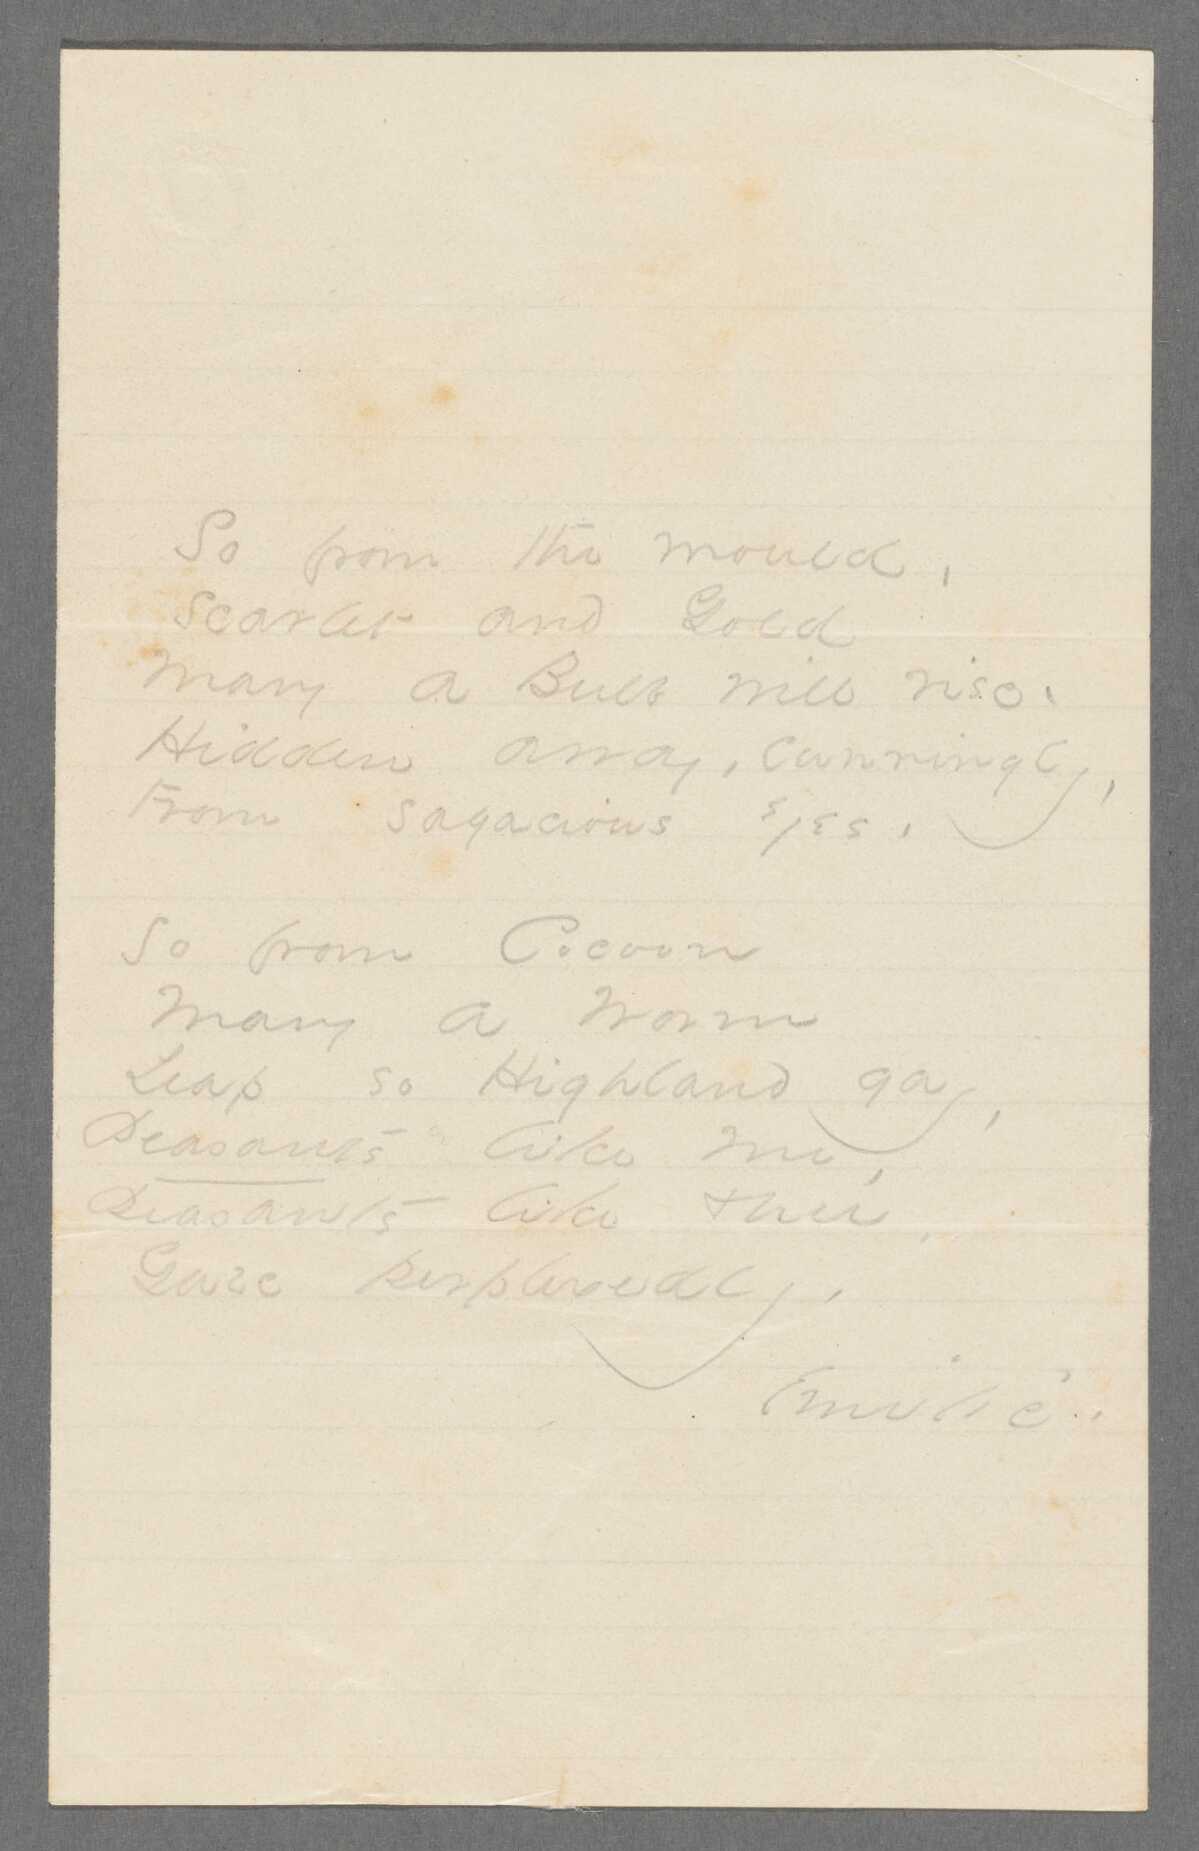 So from the mould,
Scarlet and Gold
Many a Bulb will rise.
Hidden away, Cunningly,
From sagacious Eyes.
So from Cocoon
Many a Worm
Leap so Highland gay,
Peasants like me,
Peasants like thee
Gaze perplexedly.
Emilie.